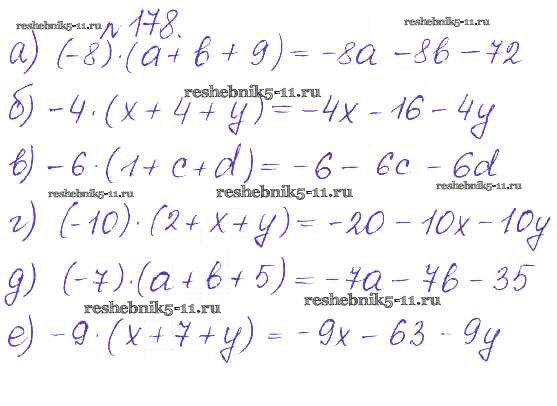 reshebnik5-11.ru № 178. reshebnik5-11.ru
а) (-8)·(a+b+9)=-8a-8b-72
reshebnik5-11.ru
б) -4·(x+4+y)=-4x-16-4y
в) -6·(1+c+d)=-6-6c-6d
reshebnik5-11.ru reshebnik5-11.ru reshebnik5-11.ru
г) (-10)·(2+x+y)=-20-10x-10y
д) (-7)·(a+b+5)=-7a-7b-35
reshebnik5-11.ru reshebnik5-11.ru
е) -9·(x+7+y)=-9x-63-9y